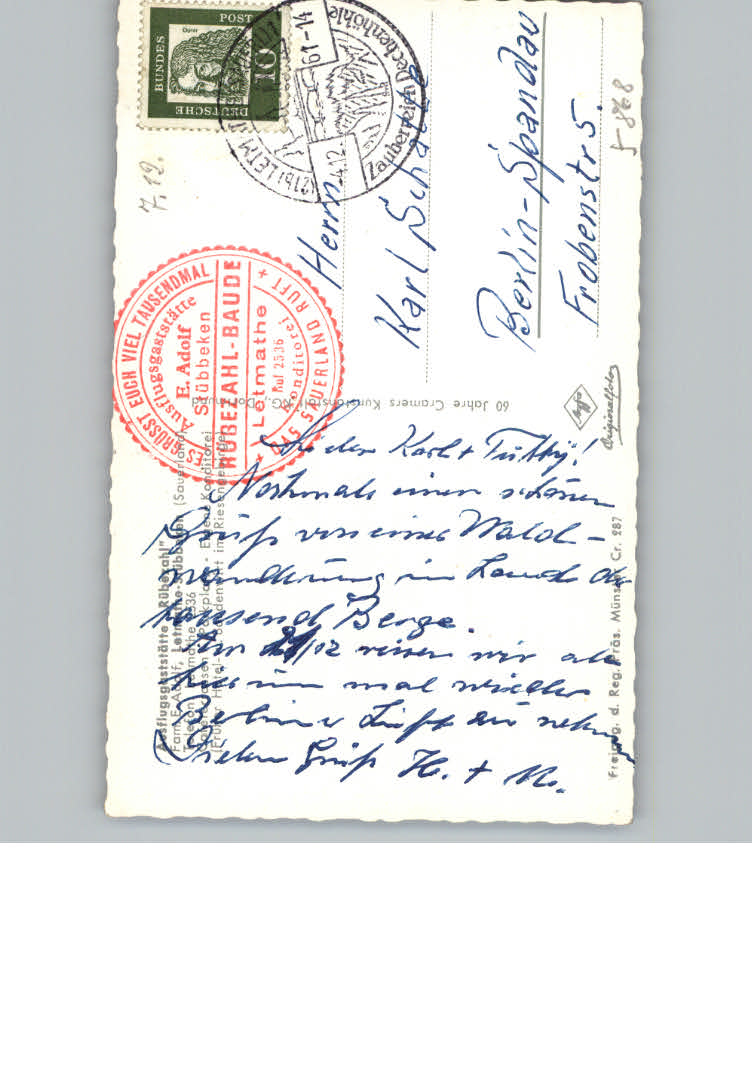 Lieber Karl + Tutty!
Nochmals einen schönen
Gruß von einer Wald-
wanderung im Land der
tausend Berge.
Am 21/12 reisen wir ab
hier um mal wieder
Berliner Luft zu nehmen
Vielen Gruß H. + M.
Herrn
Karl
Berlin-Spandau
Frobenstr 5.
7.12.
5868
DEUTSCHE
BUNDES
POST
10
Dürer
(21b) LETM
4.12. 61-14
Zauberreich Dechenhöhle
ES GRÜSST EUCH VIEL TAUSENDMAL
Ausflugsgaststätte
E. Adolf
Stübbeken
RÜBEZAHL-BAUDE
Letmathe
Ruf 2536
Konditorei
+ DAS SAUERLAND RUFT +
Ausflugsgaststätte "Rübezahl"
Fam. E. Adolf, Letmathe-Stübbeken (Sauerland)
Telefon Letmathe 2536
Parkplatz - Eigene Konditorei
(Früher Hotel- Riesengebirge)
60 Jahre Cramers Kunstanstalt KG., Dortmund
Agfa
Originalfoto
Freigeg. d. Reg. Präs. Münster Cr. 287